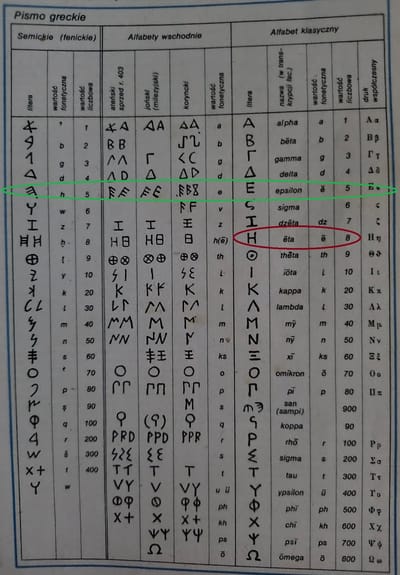 Pismo greckie
Semickie (fenickie) Alfabety wschodnie Alfabet klasyczny
litera wartość fonetyczna wartość liczbowa ateński sprzed r. 403 joński (milezyjski) koryncki wartość fonetyczna litera nazwa (w transkrypcji łac.) wartość fonetyczna wartość liczbowa druk współczesny
1 a A alpha a 1 Αα
2 B B b B bēta b 2 Ββ
g 3 Γ g Γ gamma g 3 Γγ
d 4 d Δ delta d 4 Δδ
h 5 e E epsilon e 5 Εε
w 6 v sigma 6
z 7 I I z I dzēta dz 7 ζ
8 H H h(ē) H ēta ē 8 Ηη
9 th Θ thēta th 9 Θθ
y 10 i I iōta i 10 Ιι
k 20 K K K k K kappa k 20 Κκ
l 30 l Λ lambda l 30 Λλ
m 40 m M mȳ m 40 Μμ
n 50 n N nȳ n 50 Νν
s 60 ks Ξ xī ks 60 Ξξ
O 70 O O O o O omikron ŏ 70 Οο
p 80 p Γ pī p 80 Ππ
90 M s san (sampi) 900
q 100 Ϙ (Ϙ) Ϙ q Ϙ koppa 90
r 200 r P rhō r 100 Ρρ
š 300 s Σ sigma s 200 Σσ
X + t 400 T T T t T tau t 300 Ττ
Y w V Y V V Y u ü Y ypsilon ü 400 Υυ
Φ Φ Φ ph Φ phī ph 500 Φφ
X + X X + kh X chī kh 600 Χχ
Ψ Ψ ps Ψ psī ps 700 Ψψ
Ω ō Ω ōmega ō 800 Ωω